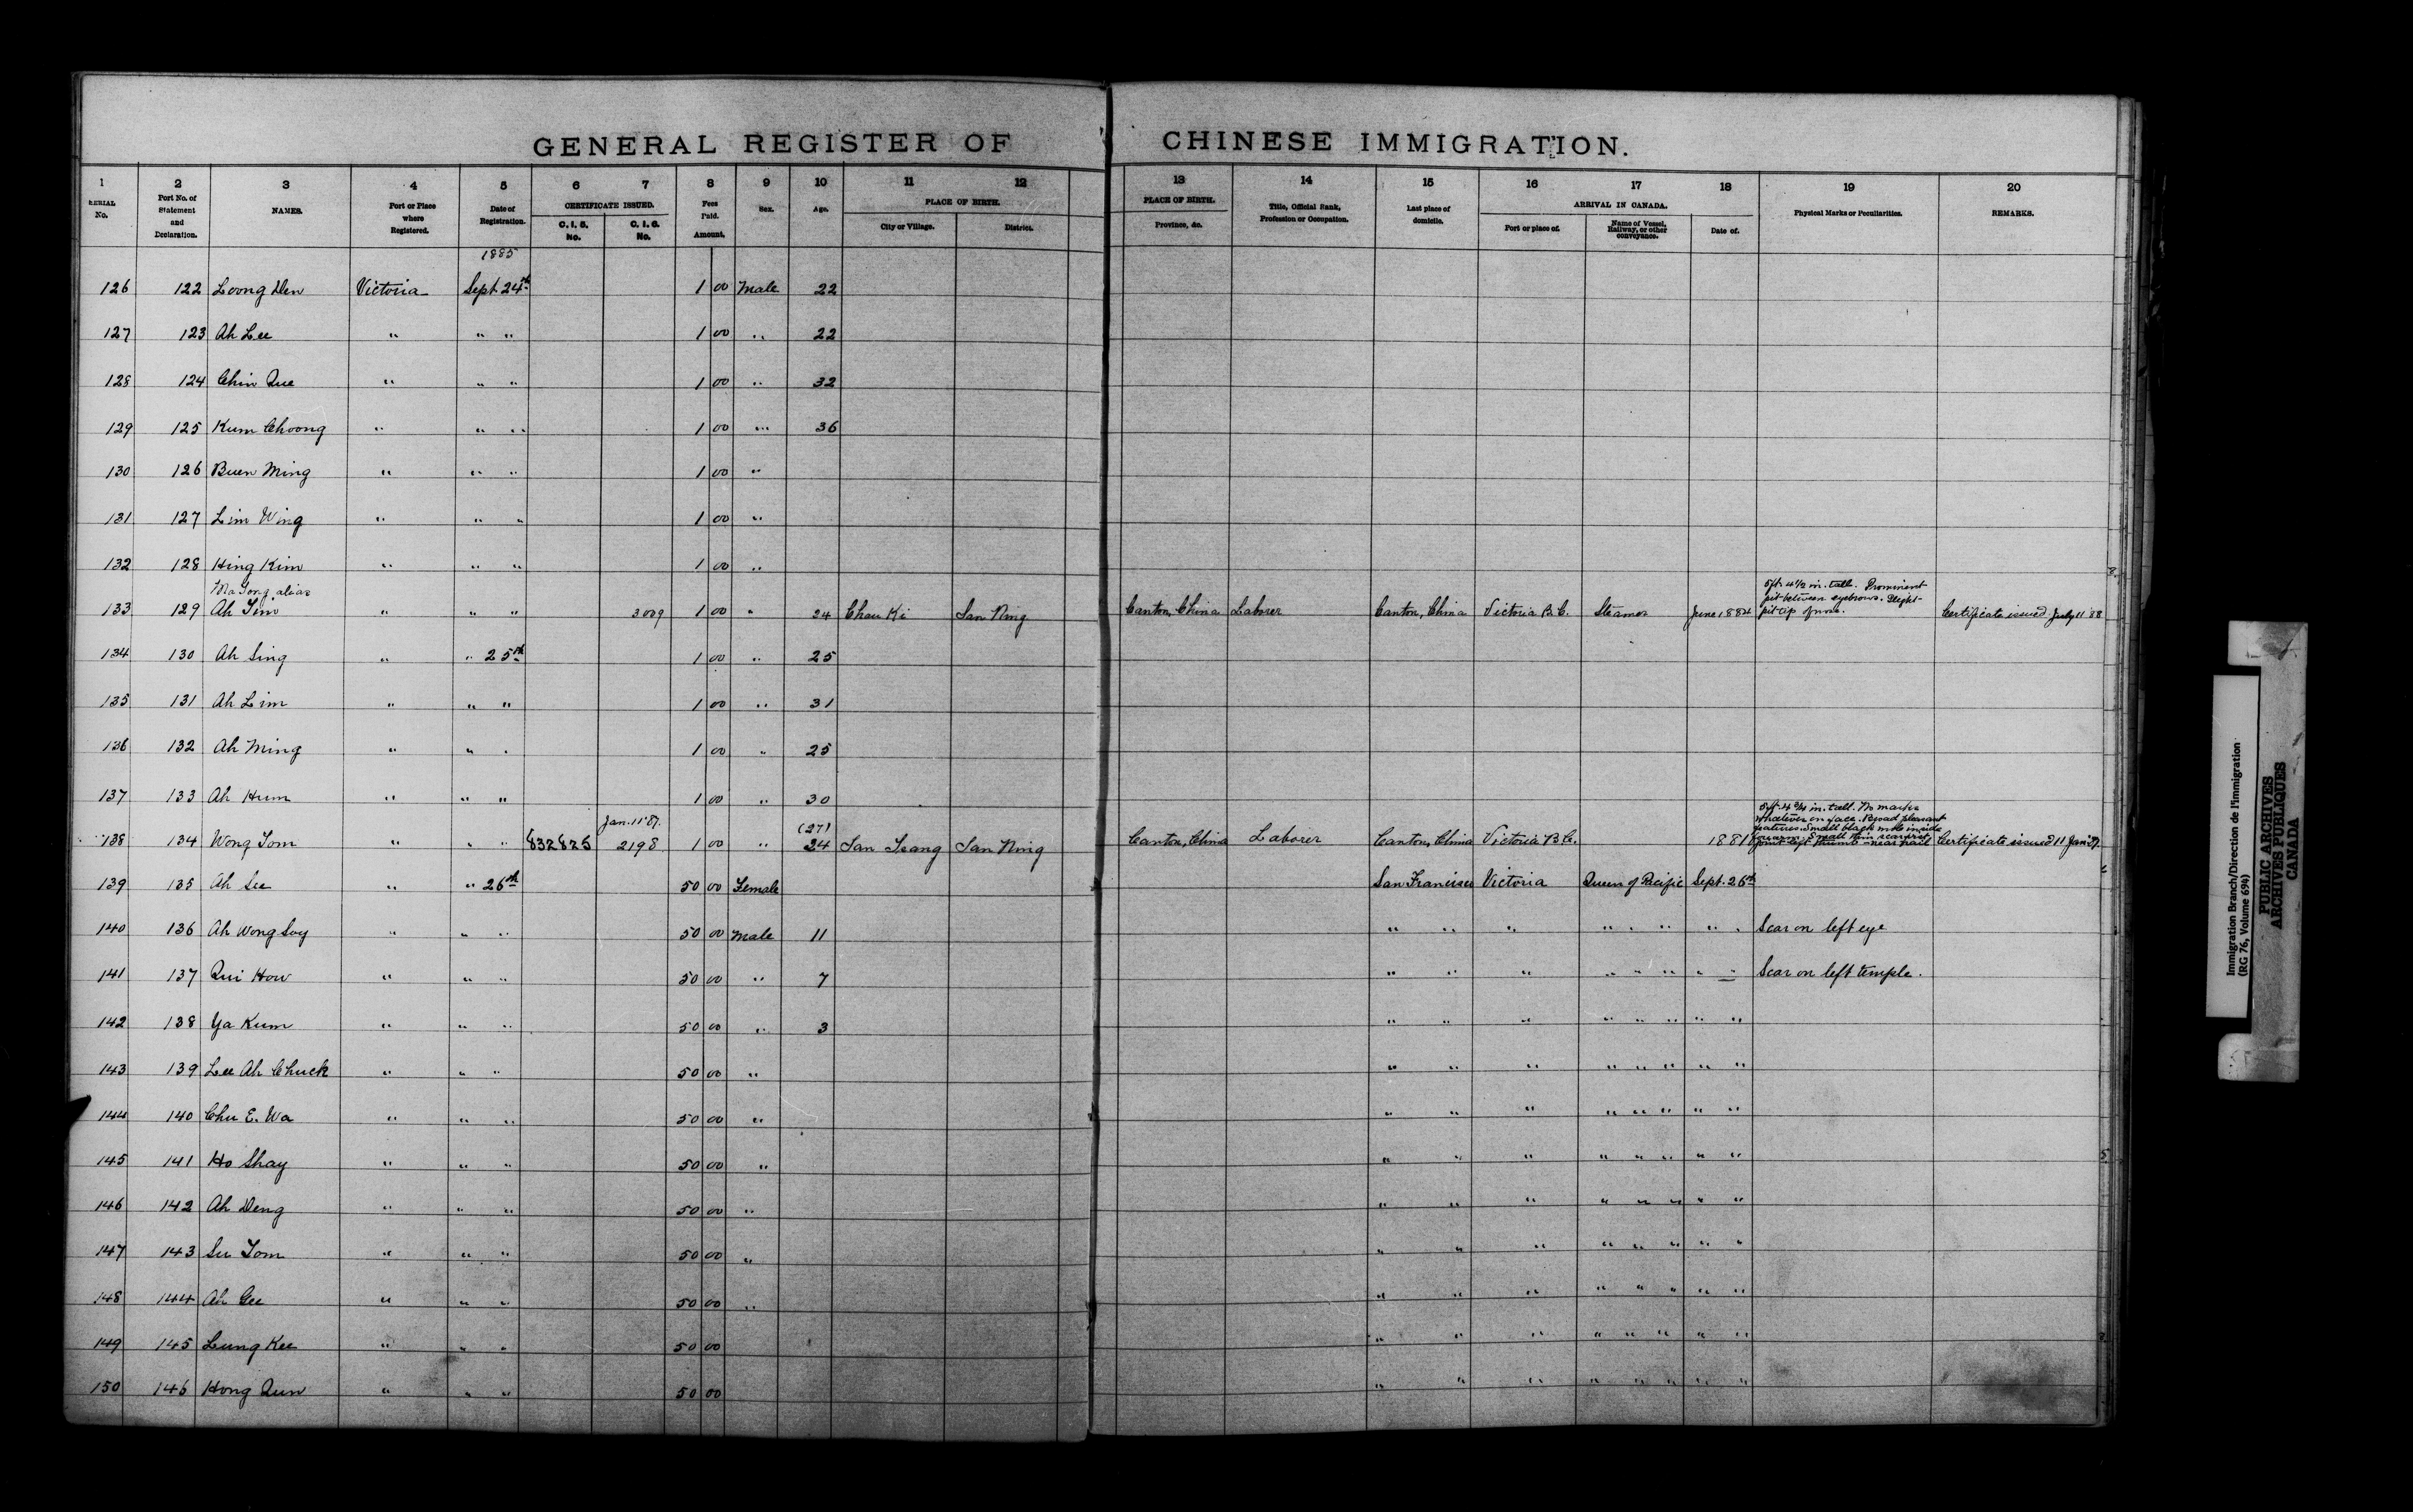 GENERAL REGISTER OF CHINESE IMMIGRATION.
1 2 3 4 5 6 7 8 9 10 11 12 13 14 15 16 17 18 19 20
SERIAL No. Port No. of Statement and Declaration. NAMES. Port or Place where Registered. Date of Registration. CERTIFICATE ISSUED. C. I. 5. No. C. I. 6. No. Fees Paid. Amount. Sex. Age. PLACE OF BIRTH. City or Village. District. PLACE OF BIRTH. Province, &c. Title, Official Rank, Profession or Occupation. Last place of domicile. ARRIVAL IN CANADA. Port or place of. Name of Vessel, Railway, or other conveyance. Date of. Physical Marks or Peculiarities. REMARKS.
1885
126 122 Loong Den Victoria Sept 24th 1 00 Male 22
127 123 Ah Lee " " " 1 00 " 22
128 124 Chin Que " " " 1 00 " 32
129 125 Kum Choong " " " 1 00 " 36
130 126 Buen Ming " " " 1 00 "
131 127 Lim Wing " " " 1 00 "
132 128 Hing Kim " " " 1 00 "
Ma Tong alias
133 129 Ah Tim " " " 3009 1 00 " 24 Chau Ki San Ning Canton, China Laborer Canton, China Victoria B.C. Steamer June 1884 5ft. 4 1/2 in. tall. Prominent pit between eyebrows. Slight pit tip of nose. Certificate issued July 11 '88
134 130 Ah Sing " " 25th 1 00 " 25
135 131 Ah Lim " " " 1 00 " 31
136 132 Ah Ming " " " 1 00 " 25
137 133 Ah Hum " " " 1 00 " 30
Jan. 11 '87. (27)
138 134 Wong Tom " " " 832825 2198 1 00 " 24 San Tsang San Ning Canton, China Laborer Canton, China Victoria B.C. 1881 5ft. 4 3/4 in. tall. No marks whatever on face. Broad pleasant features. Small black mole inside Small thin scar left thumb near nail Certificate issued 11 Jan '87.
139 135 Ah See " " 26th 50 00 Female San Francisco Victoria Queen of Pacific Sept. 26th
140 136 Ah Wong Soy " " " 50 00 Male 11 " " " " " " " " Scar on left eye
141 137 Qui How " " " 50 00 " 7 " " " " " " " " Scar on left temple.
142 138 Ya Kum " " " 50 00 " 3 " " " " " " " "
143 139 Lee Ah Chuck " " " 50 00 " " " " " " " " "
144 140 Chu E. Wa " " " 50 00 " " " " " " " " "
145 141 Ho Shay " " " 50 00 " " " " " " " " "
146 142 Ah Deng " " " 50 00 " " " " " " " " "
147 143 Su Tom " " " 50 00 " " " " " " " " "
148 144 Ah Gee " " " 50 00 " " " " " " " " "
149 145 Lung Kee " " " 50 00 " " " " " " " "
150 146 Hong Qun " " " 50 00 " " " " " " " "
Immigration Branch/Direction de l'immigration
(RG 76, Volume 694)
PUBLIC ARCHIVES
ARCHIVES PUBLIQUES
CANADA